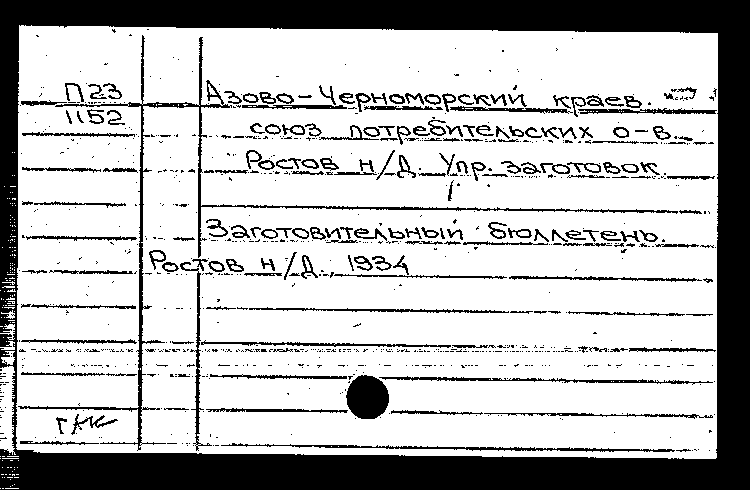 П23
1152
Азово-Черноморский краев.
союз потребительских о-в.
Ростов н/Д. Упр. заготовок.
Заготовительный бюллетень.
Ростов н/Д., 1934